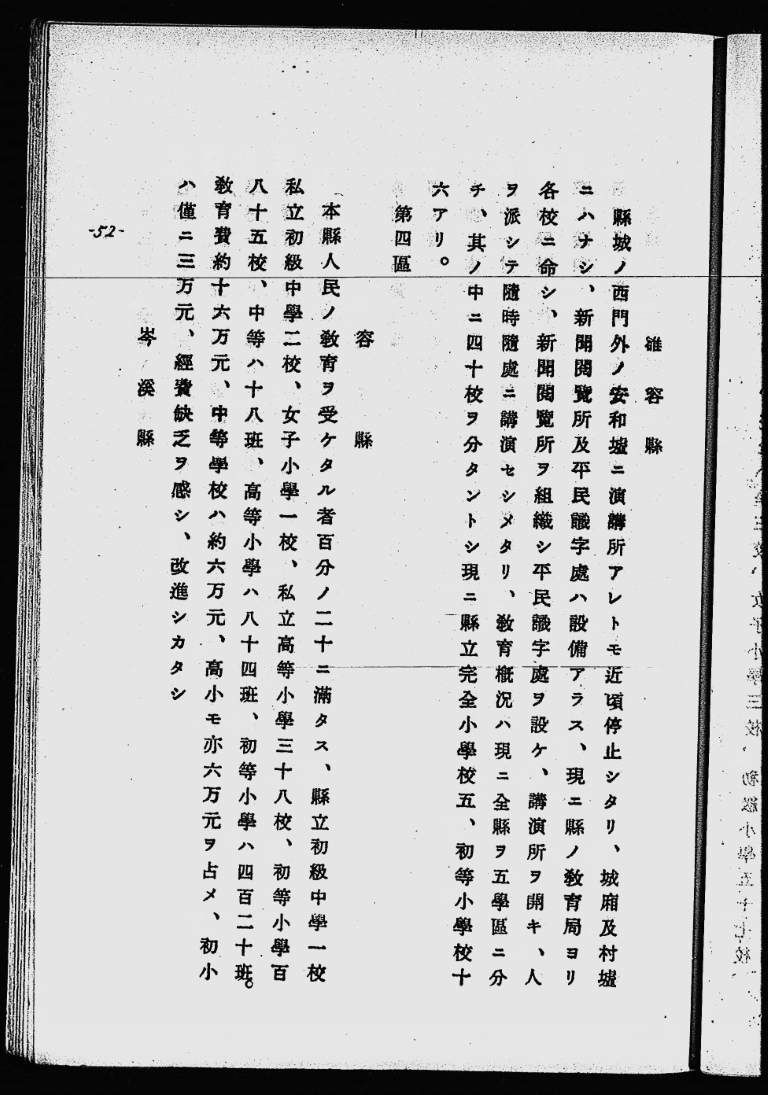 雒容縣
縣城ノ西門外ノ安和墟ニ演講所アレトモ近頃停止シタリ、城廂及村墟
ニハナシ、新聞閲覽所及平民識字處ハ設備アラス、現ニ縣ノ敎育局ヨリ
各校ニ命シ、新聞閲覽所ヲ組織シ平民識字處ヲ設ケ、講演所ヲ開キ、人
ヲ派シテ隨時隨處ニ講演セシメタリ、敎育概況ハ現ニ全縣ヲ五學區ニ分
チ、其ノ中ニ四十校ヲ分タントシ現ニ縣立完全小學校五、初等小學校十
六アリ。
第四區
容縣
本縣人民ノ敎育ヲ受ケタル者百分ノ二十ニ滿タス、縣立初級中學一校
私立初級中學二校、女子小學一校、私立高等小學三十八校、初等小學百
八十五校、中等ハ十八班、高等小學ハ八十四班、初等小學ハ四百二十班。
敎育費約十六万元、中等學校ハ約六万元、高小モ亦六万元ヲ占メ、初小
ハ僅ニ三万元、經費缺乏ヲ感シ、改進シカタシ
岑溪縣
-52-